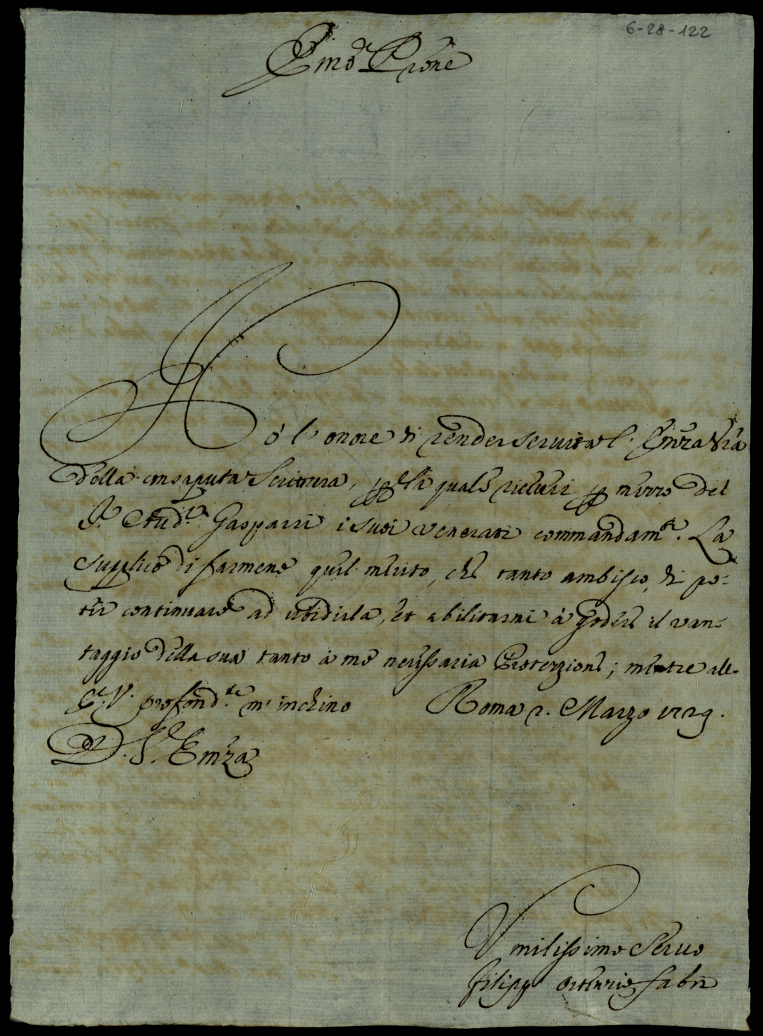 6-28-122
Emo e Prone
Hò l'onore di render servita l'Emza Vra
della consaputa Scrittura, p la quale ricevei p mezzo del
Sr. Audre. Gasparri i suoi venerati commandamti. La
supplico di farmene quel merito, che tanto ambisco, di po-
ter continuare ad ubidirla, et abilitarmi à godere il van-
taggio della sua tanto à me necessaria Protezzione; mentre all-
E. V. profondte m'inchino Roma 2. Marzo 1729.
D. V. Emza
Umilissimo Servo
Filippo Fabri